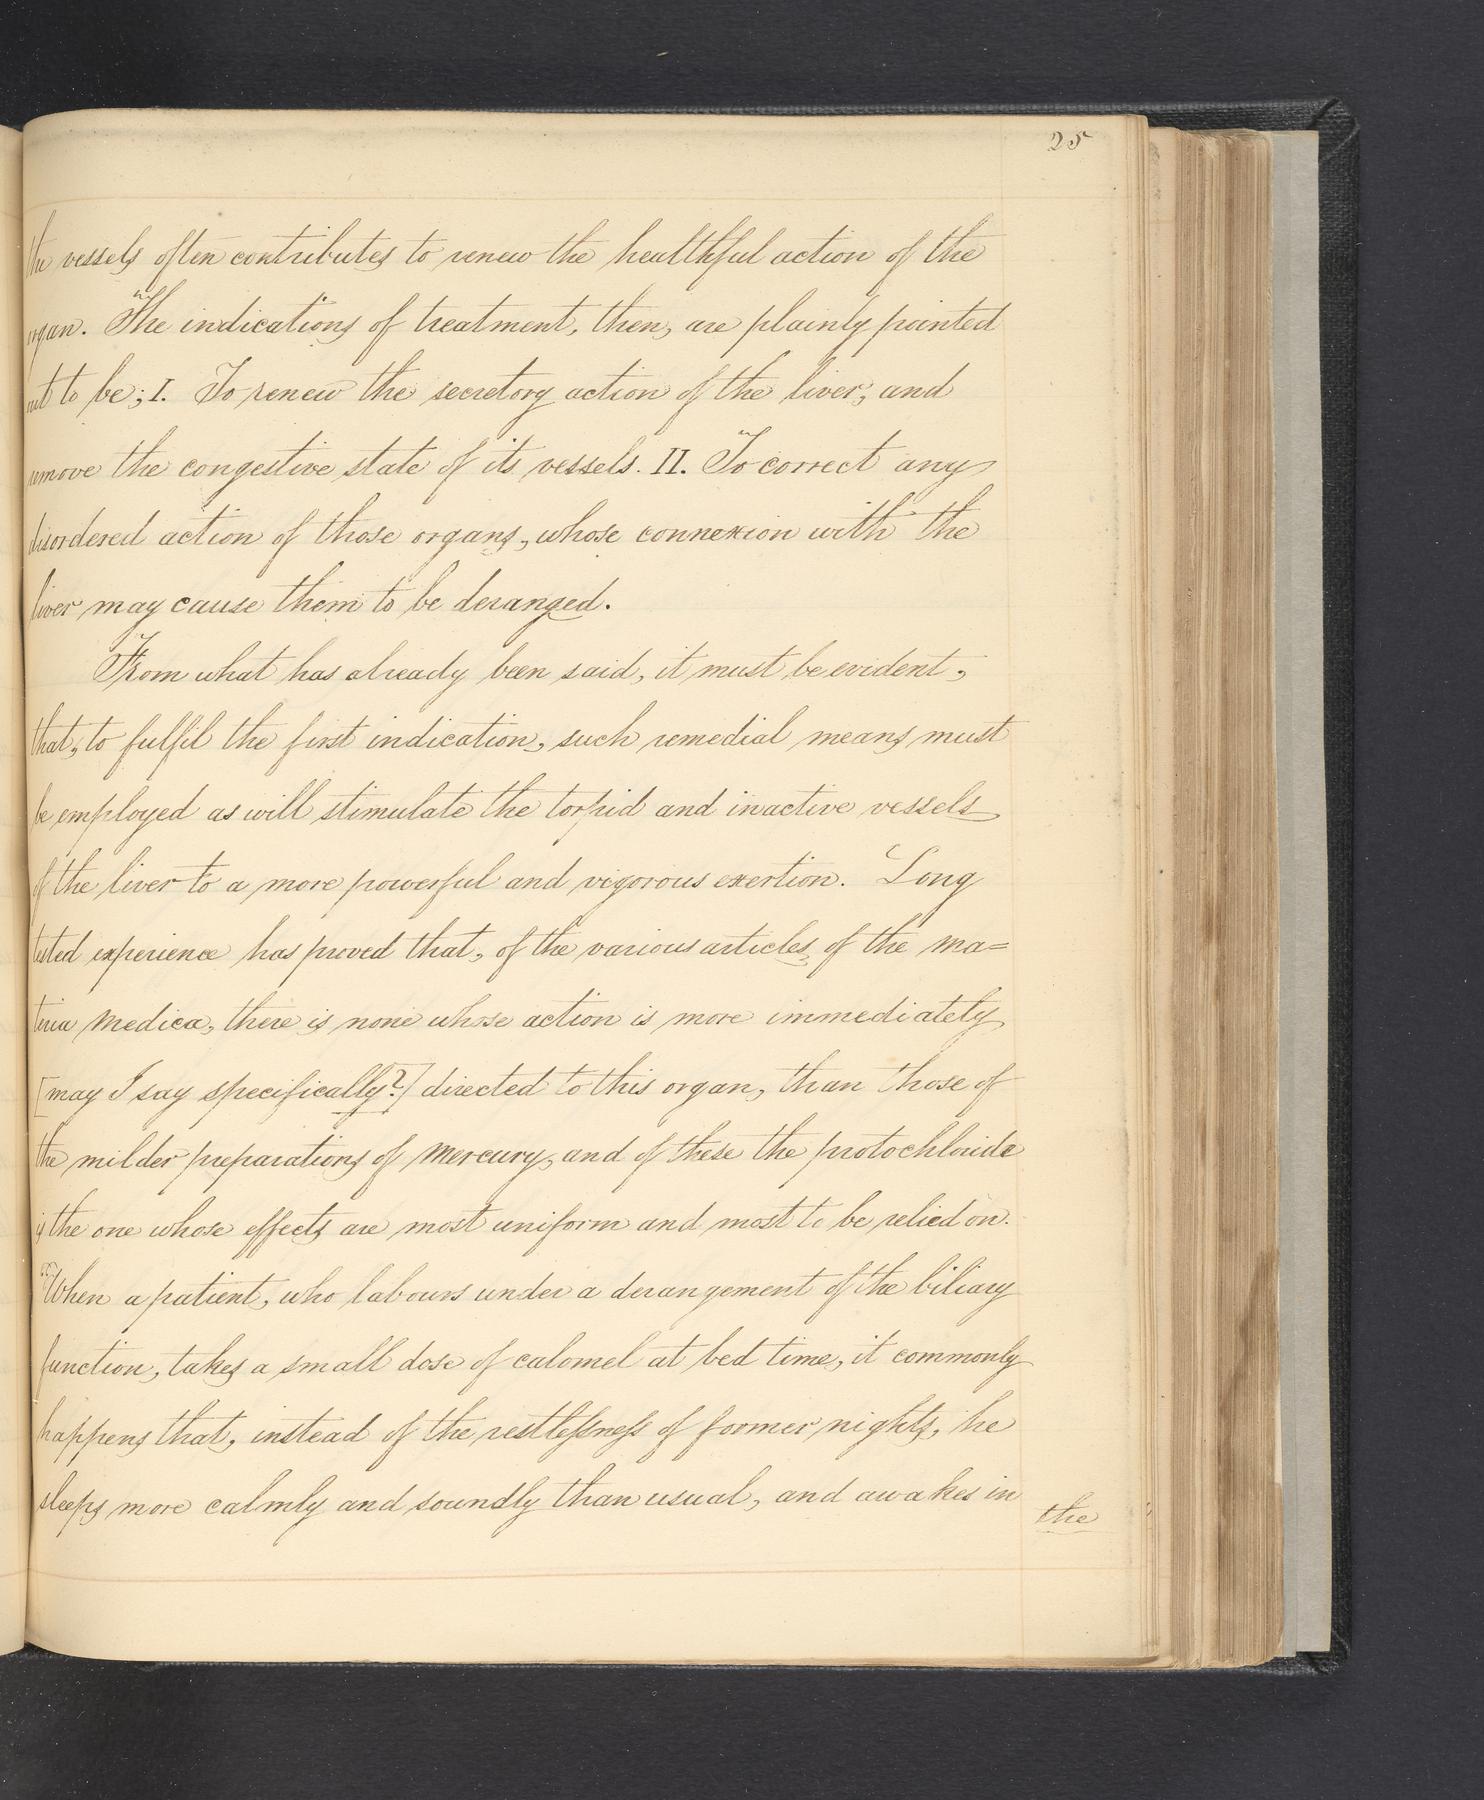 25
the vessels often contributes to renew the healthful action of the
organ. The indications of treatment, then, are plainly pointed
out to be; I. To renew the secretory action of the liver, and
remove the congestive state of its vessels. II. To correct any
disordered action of those organs, whose connexion with the
liver may cause them to be deranged.
From what has already been said, it must be evident,
that, to fulfil the first indication, such remedial means must
be employed as will stimulate the torpid and inactive vessels
of the liver to a more powerful and vigorous exertion. Long
tested experience has proved that, of the various articles of the ma=
teria medica, there is none whose action is more immediately
[may I say specifically?] directed to this organ, than those of
the milder preparations of mercury, and of these the protochloride
is the one whose effects are most uniform and most to be relied on.
When a patient, who labours under a derangement of the biliary
function, takes a small dose of calomel at bed time, it commonly
happens that, instead of the restlessness of former nights, he
sleeps more calmly and soundly than usual, and awakes in
the